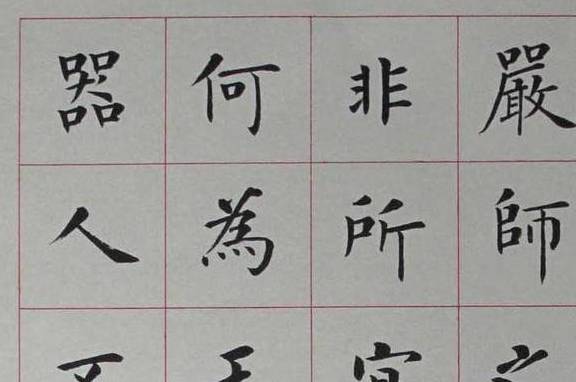 嚴師
非所
何為
器人